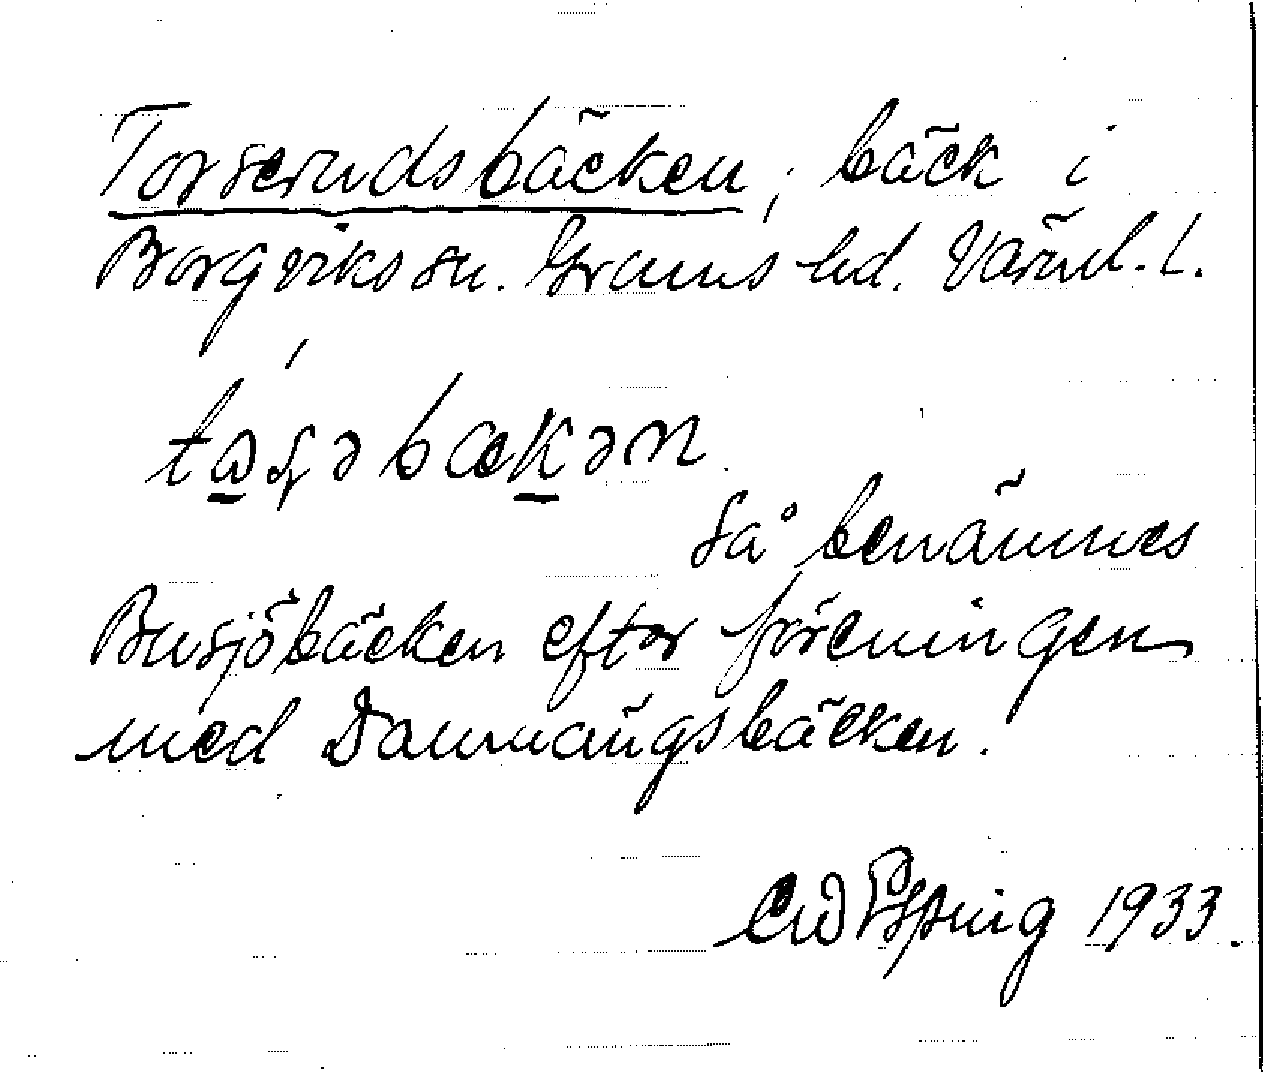 Torserudsbäcken, bäck i
Borgviks sn. Grums hd. Värml. l.
så benämnes
Busjöbäcken efter föreningen
med Dammängsbäcken.
1933.